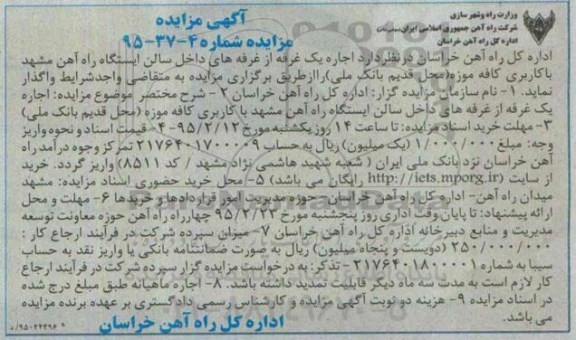 وزارت راه وشهر سازی
شرکت راه آهن جمهوری اسلامی ایران
اداره کل راه آهن خراسان
آگهی مزایده
مزایده شماره ۴-۳۷-۹۵
اداره کل راه آهن خراسان درنظردارد اجاره یک غرفه از غرفه های داخل سالن ایستگاه راه آهن مشهد
باکاربری کافه موزه(محل قدیم بانک ملی)راازطریق برگزاری مزایده به متقاضی واجدشرایط واگذار
نماید. ۱- نام سازمان مزایده گزار: اداره کل راه آهن خراسان ۲- شرح مختصر موضوع مزایده: اجاره
یک غرفه از غرفه های داخل سالن ایستگاه راه آهن مشهد با کاربری کافه موزه (محل قدیم بانک ملی)
۳- مهلت خرید اسناد مزایده: تا ساعت ۱۴ روز یکشنبه مورخ ۹۵/۲/۱۲ ۴- قیمت اسناد و نحوه واریز
وجه: مبلغ ۱/۰۰۰/۰۰۰ (یک میلیون) ریال به حساب ۲۱۷۶۴۰۱۷۰۰۰۰۹ تمرکز وجوه درآمد راه
آهن خراسان نزد بانک ملی ایران ( شعبه شهید هاشمی نژاد مشهد / کد ۸۵۱۱) واریز گردد. خرید
از سایت (http://iets.mporg.ir رایگان می باشد) ۵- محل خرید حضوری اسناد مزایده: مشهد
میدان راه آهن- اداره کل راه آهن خراسان - حوزه مدیریت امور قراردادها و خریدها ۶- مهلت و محل
ارائه پیشنهاد: تا پایان وقت اداری روز پنجشنبه مورخ ۹۵/۲/۲۳ چهارراه راه آهن حوزه معاونت توسعه
مدیریت و منابع دبیرخانه اداره کل راه آهن خراسان ۷- میزان سپرده شرکت در فرآیند ارجاع کار :
۲۵۰/۰۰۰/۰۰۰ (دویست و پنجاه میلیون) ریال به صورت ضمانتنامه بانکی یا واریز نقد به حساب
سیبا به شماره ۲۱۷۶۴۰۱۸۰۰۰۰۱ - تذکر: به درخواست مزایده گزار سپرده شرکت در فرآیند ارجاع
کار لازم است به مدت سه ماه دیگر قابلیت تمدید داشته باشد. ۸- اجاره ماهیانه طبق مبلغ درج شده
در اسناد مزایده ۹- هزینه دو نوبت آگهی مزایده و کارشناس رسمی دادگستری بر عهده برنده مزایده
می باشد.
اداره کل راه آهن خراسان